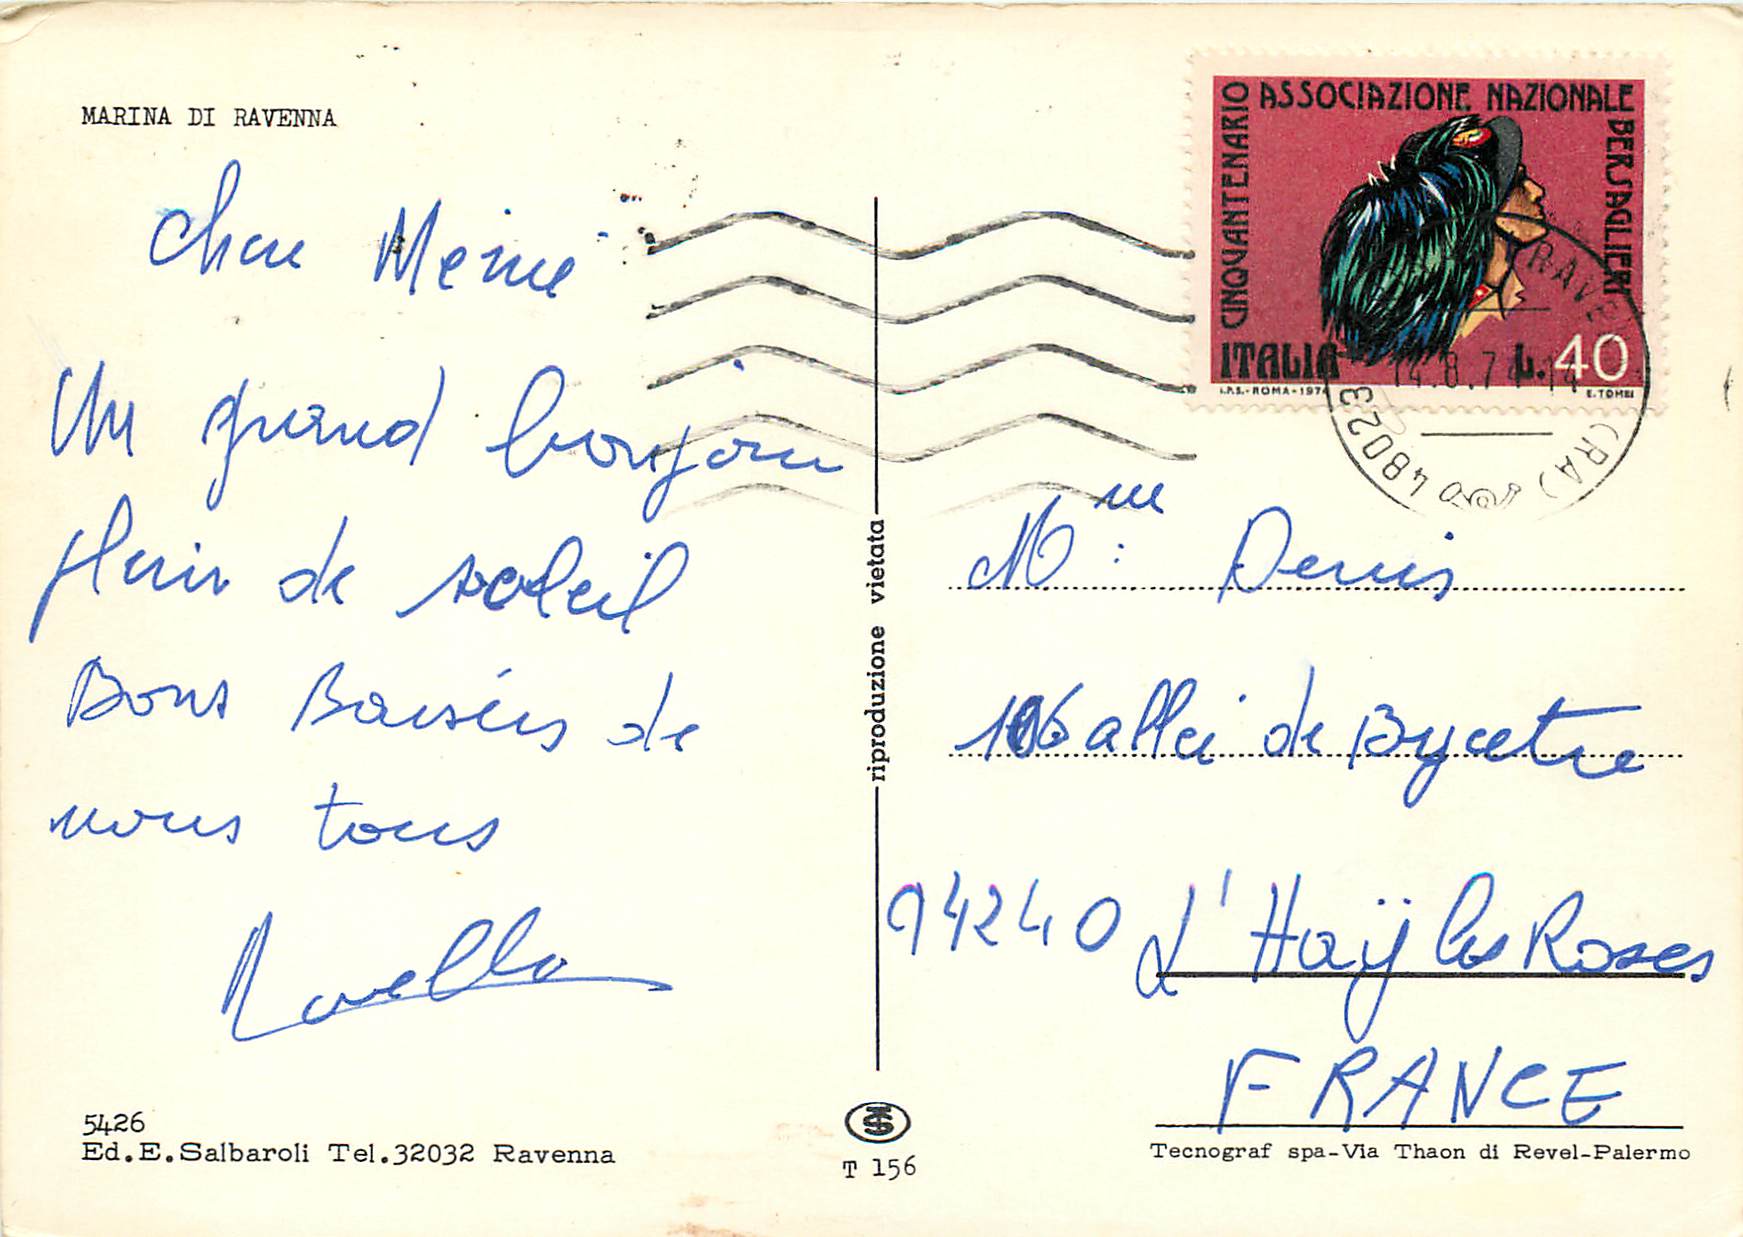 MARINA DI RAVENNA
Un grand bonjour
plein de soleil
Bons Baisers de
nous tous
5426
Ed.E.Salbaroli Tel.32032 Ravenna
riproduzione vietata
T 156
CINQUANTENARIO ASSOCIAZIONE NAZIONALE BERSAGLIERI
ITALIA L.40
I.P.S.-ROMA-1974 E.TOMEI
14.8.74-14
48023 (RA)
Mme: Denis
106 allei de Bycetre
94240 L'Haÿ les Roses
FRANCE
Tecnograf spa-Via Thaon di Revel-Palermo